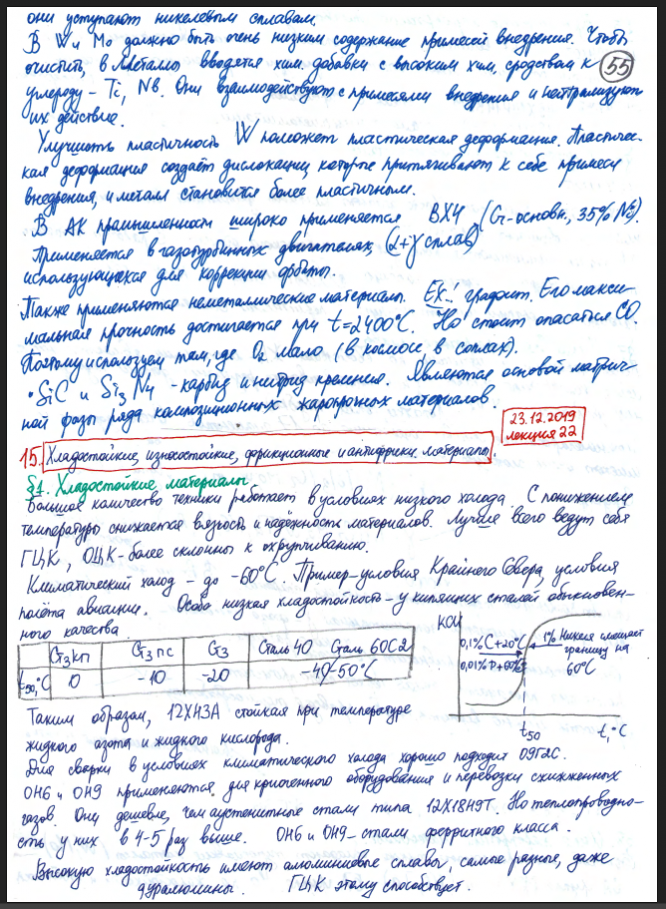 они уступают никелевым сплавам.
В W и Mo должно быть очень низким содержание примесей внедрения. Чтобы
очистить, в металлы вводятся хим. добавки с высоким хим. сродством к
55
углероду - Ti, Nb. Они взаимодействуют с примесями внедрения и нейтрализуют
их действие.
Улучшить пластичность W поможет пластическая деформация. Пластичес-
кая деформация создаёт дислокации, которые притягивают к себе примеси
внедрения, и металл становится более пластичным.
В АК промышленности широко применяется ВХ4 (Cr-основн., 35% Ni).
Применяется в газотурбинных двигателях, (α+γ сплав)
использующихся для коррекции орбиты.
Также применяются неметаллические материалы. Ex.: графит. Его макси-
мальная прочность достигается при t=2400°C. Но стоит опасаться CO.
Поэтому используем там, где O2 мало (в космосе, в соплах).
• SiC и Si3N4 - карбид и нитрид кремния. Являются основой матрич-
ной фазы ряда композиционных жаропрочных материалов.
23.12.2019
лекция 22
15. Хладостойкие, износостойкие, фрикционные и антифрикц. материалы.
§1. Хладостойкие материалы.
Большое количество техники работает в условиях низкого холода. С понижением
температуры снижается вязкость и надёжность материалов. Лучше всего ведут себя
ГЦК, ОЦК - более склонны к охрупчиванию.
Климатический холод - до -60°C. Пример - условия Крайнего Севера, условия
полёта авиации. Особо низкая хладостойкость - у кипящих сталей обыкновен-
ного качества.
Ст3кп Ст3пс Ст3 Сталь 40 Сталь 60С2
t50,°C 0 -10 -20 -40-50°C
KCU
0,1% C +20°C
0,01% P +
1% Никеля смещает
границу на
60°C
t50 t,°C
Таким образом, 12ХН3А стойкая при температуре
жидкого азота и жидкого кислорода.
Для сварки в условиях климатического холода хорошо подходит 09Г2С.
ОН6 и ОН9 применяются для криогенного оборудования и перевозки сжиженных
газов. Они дешевле, чем аустенитные стали типа 12Х18Н9Т. Но теплопроводно-
сть у них в 4-5 раз выше. ОН6 и ОН9 - стали ферритного класса.
Высокую хладостойкость имеют алюминиевые сплавы, самые разные, даже
дуралюмины. ГЦК этому способствует.